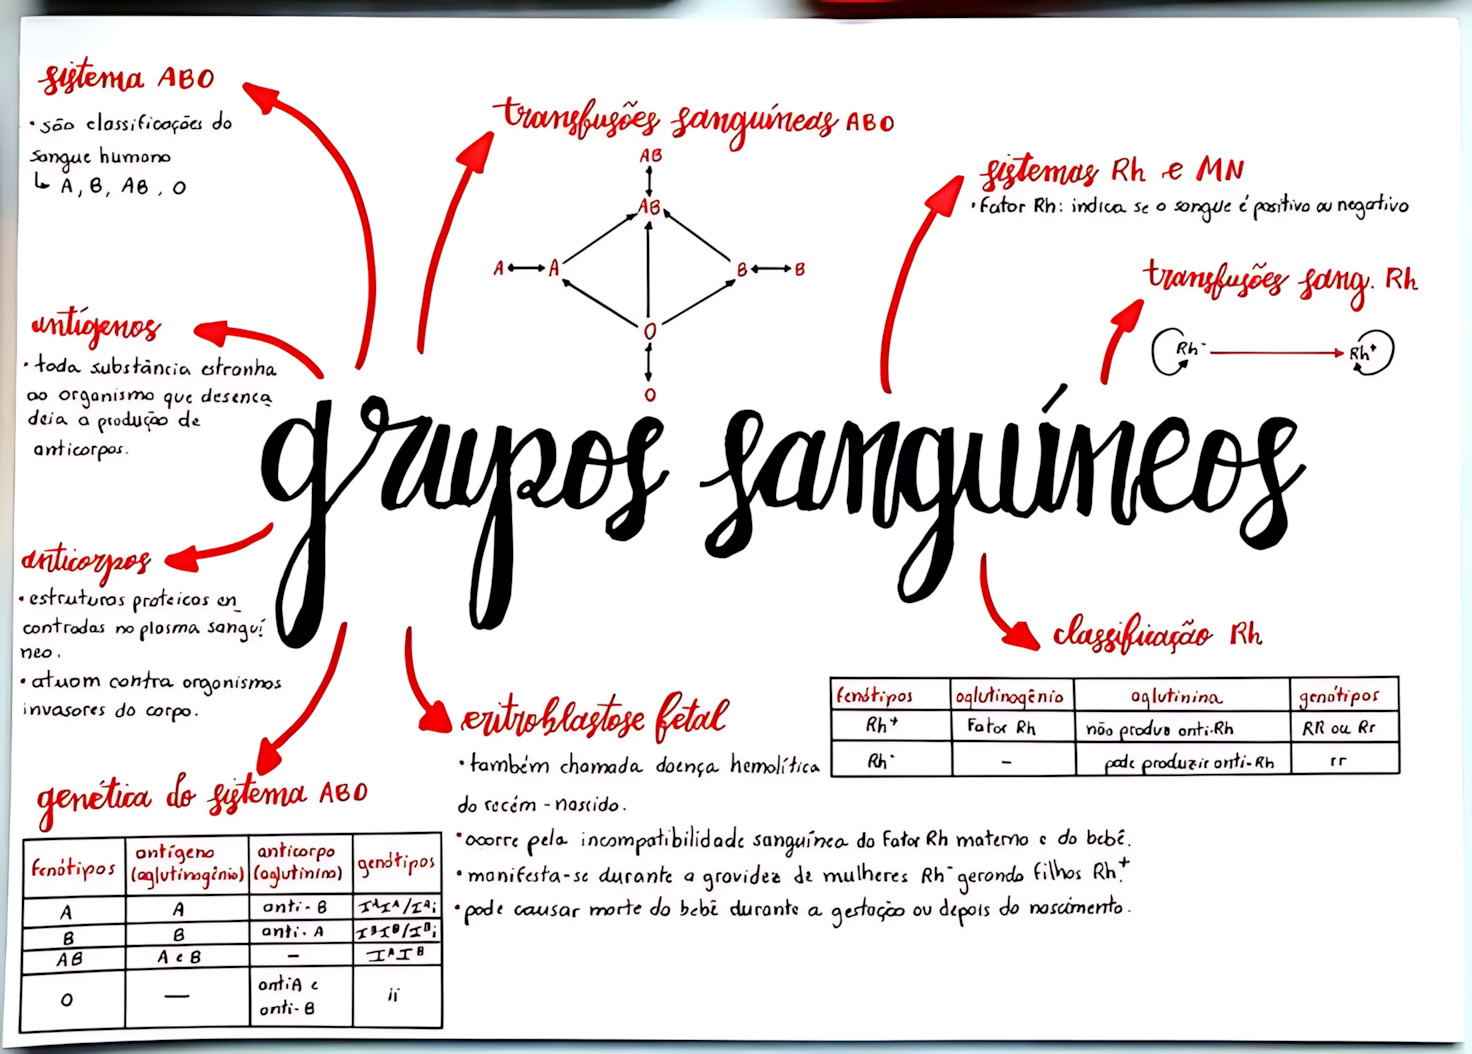 sistema ABO
• são classificações do
sangue humano
↳ A, B, AB, O
transfusões sanguíneas ABO
AB
AB
A ↔ A
B ↔ B
O
O
sistemas Rh e MN
• Fator Rh: indica se o sangue é positivo ou negativo
transfusões sang. Rh
Rh⁻ → Rh⁺
antígenos
• toda substância estranha
ao organismo que desenca
deia a produção de
anticorpos.
grupos sanguíneos
anticorpos
• estruturas proteicas en_
contradas no plasma sanguí
neo.
• atuam contra organismos
invasores do corpo.
classificação Rh
fenótipos aglutinogênio aglutinina genótipos
Rh⁺ Fator Rh não produz anti-Rh RR ou Rr
Rh⁻ - pode produzir anti-Rh rr
eritroblastose fetal
• também chamada doença hemolítica
do recém-nascido.
• ocorre pela incompatibilidade sanguínea do Fator Rh materno e do bebê.
• manifesta-se durante a gravidez de mulheres Rh⁻ gerando filhos Rh⁺.
• pode causar morte do bebê durante a gestação ou depois do nascimento.
genética do sistema ABO
fenótipos antígeno (aglutinogênio) anticorpo (aglutinina) genótipos
A A anti-B IᴬIᴬ/Iᴬi
B B anti-A IᴮIᴮ/Iᴮi
AB A e B - IᴬIᴮ
O — anti A e anti-B ii